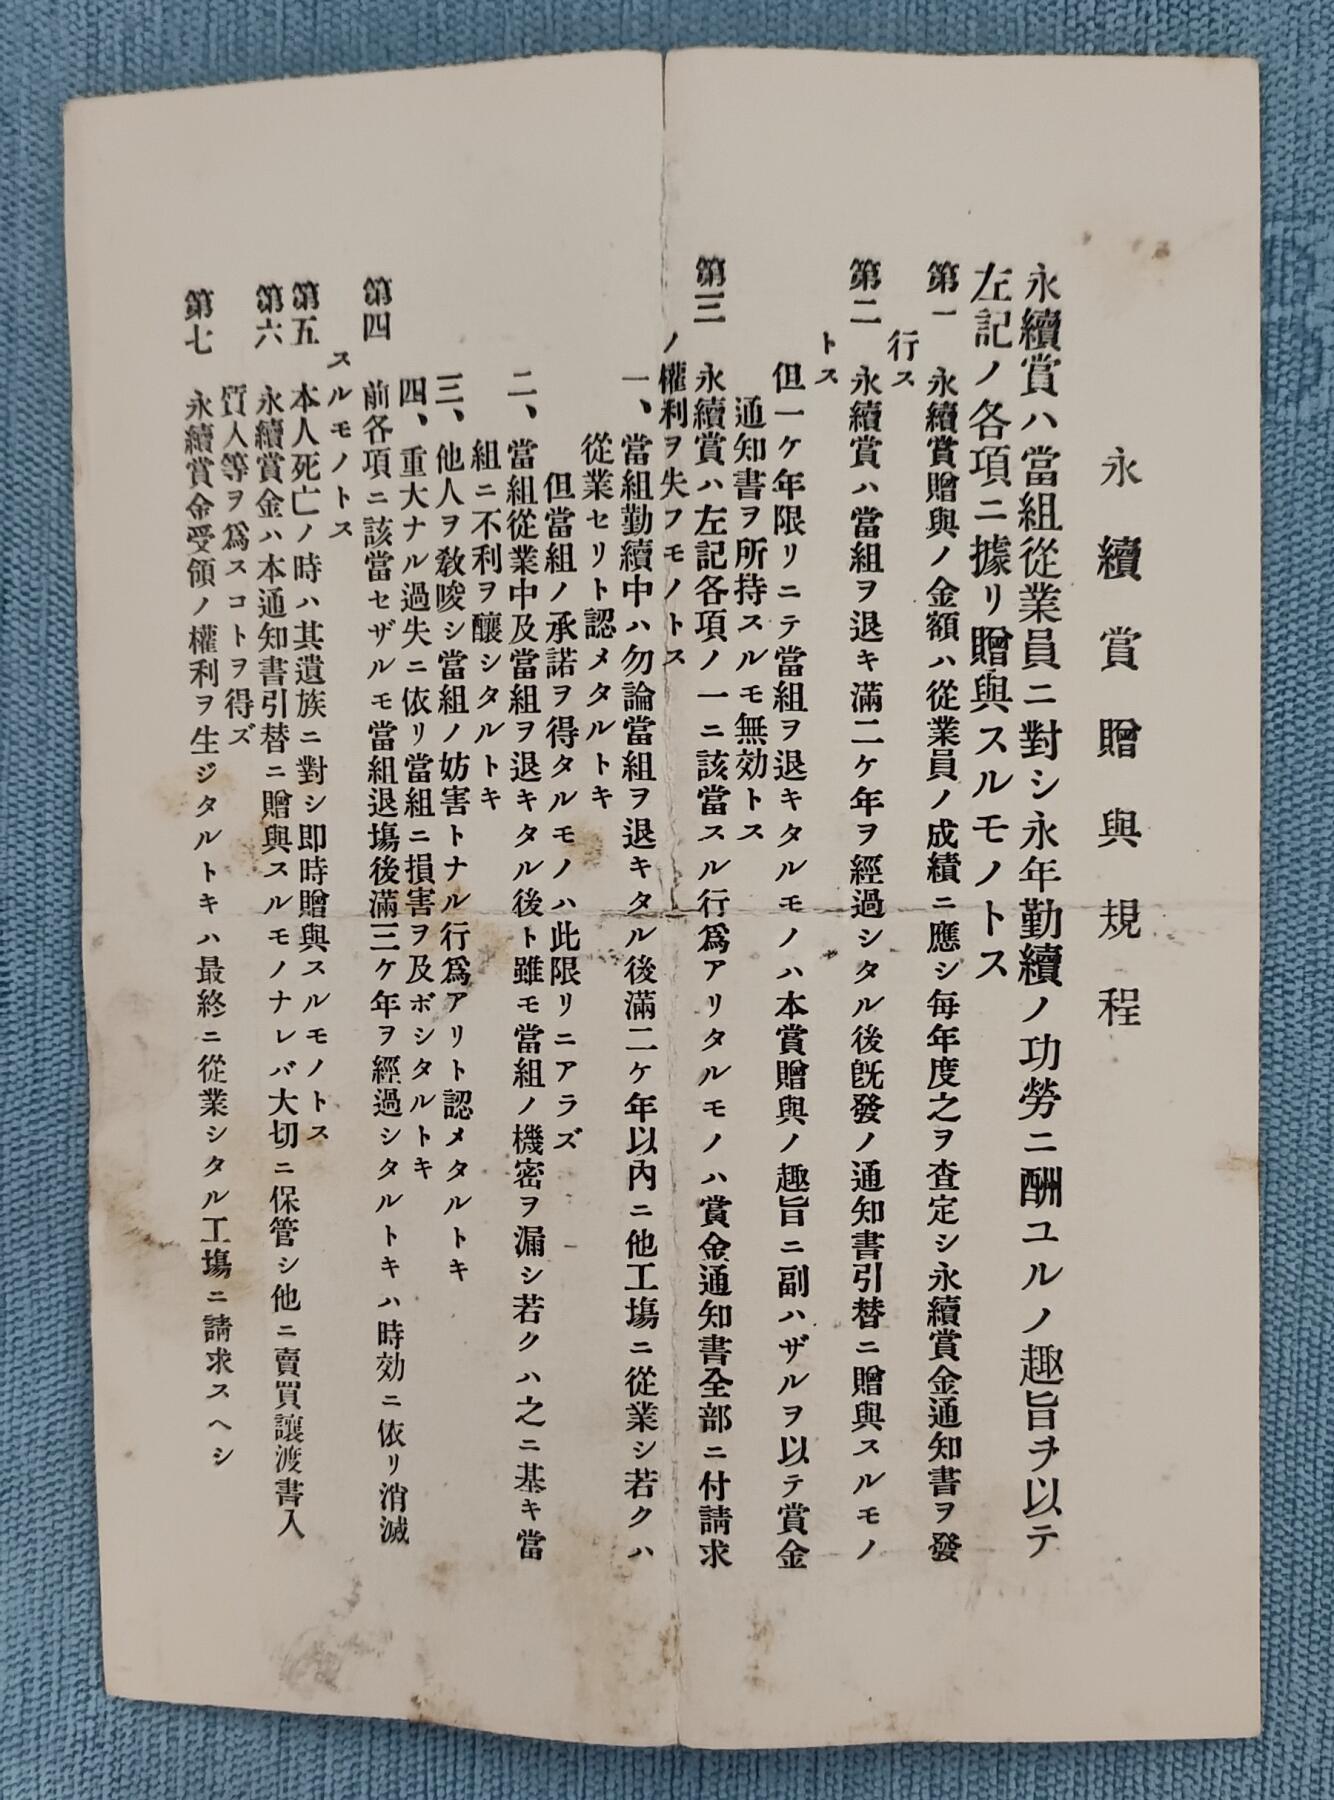 永續賞贈與規程
永續賞ハ當組從業員ニ對シ永年勤續ノ功勞ニ酬ユルノ趣旨ヲ以テ
左記ノ各項ニ據リ贈與スルモノトス
第一 永續賞贈與ノ金額ハ從業員ノ成績ニ應シ每年度之ヲ査定シ永續賞金通知書ヲ發
行ス
第二 永續賞ハ當組ヲ退キ滿二ケ年ヲ經過シタル後旣發ノ通知書引替ニ贈與スルモノ
トス
但一ケ年限リニテ當組ヲ退キタルモノハ本賞贈與ノ趣旨ニ副ハザルヲ以テ賞金
通知書ヲ所持スルモ無効トス
第三 永續賞ハ左記各項ノ一ニ該當スル行爲アリタルモノハ賞金通知書全部ニ付請求
ノ權利ヲ失フモノトス
一、當組勤續中ハ勿論當組ヲ退キタル後滿二ケ年以內ニ他工塲ニ從業シ若クハ
從業セリト認メタルトキ
但當組ノ承諾ヲ得タルモノハ此限リニアラズ
二、當組從業中及當組ヲ退キタル後ト雖モ當組ノ機密ヲ漏シ若クハ之ニ基キ當
組ニ不利ヲ釀シタルトキ
三、他人ヲ敎唆シ當組ノ妨害トナル行爲アリト認メタルトキ
四、重大ナル過失ニ依リ當組ニ損害ヲ及ボシタルトキ
第四 前各項ニ該當セザルモ當組退塲後滿三ケ年ヲ經過シタルトキハ時効ニ依リ消滅
スルモノトス
第五 本人死亡ノ時ハ其遺族ニ對シ卽時贈與スルモノトス
第六 永續賞金ハ本通知書引替ニ贈與スルモノナレバ大切ニ保管シ他ニ賣買讓渡書入
質入等ヲ爲スコトヲ得ズ
第七 永續賞金受領ノ權利ヲ生ジタルトキハ最終ニ從業シタル工塲ニ請求スヘシ